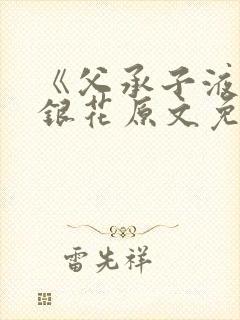 《父承子液
銀花原文免
雷先祥